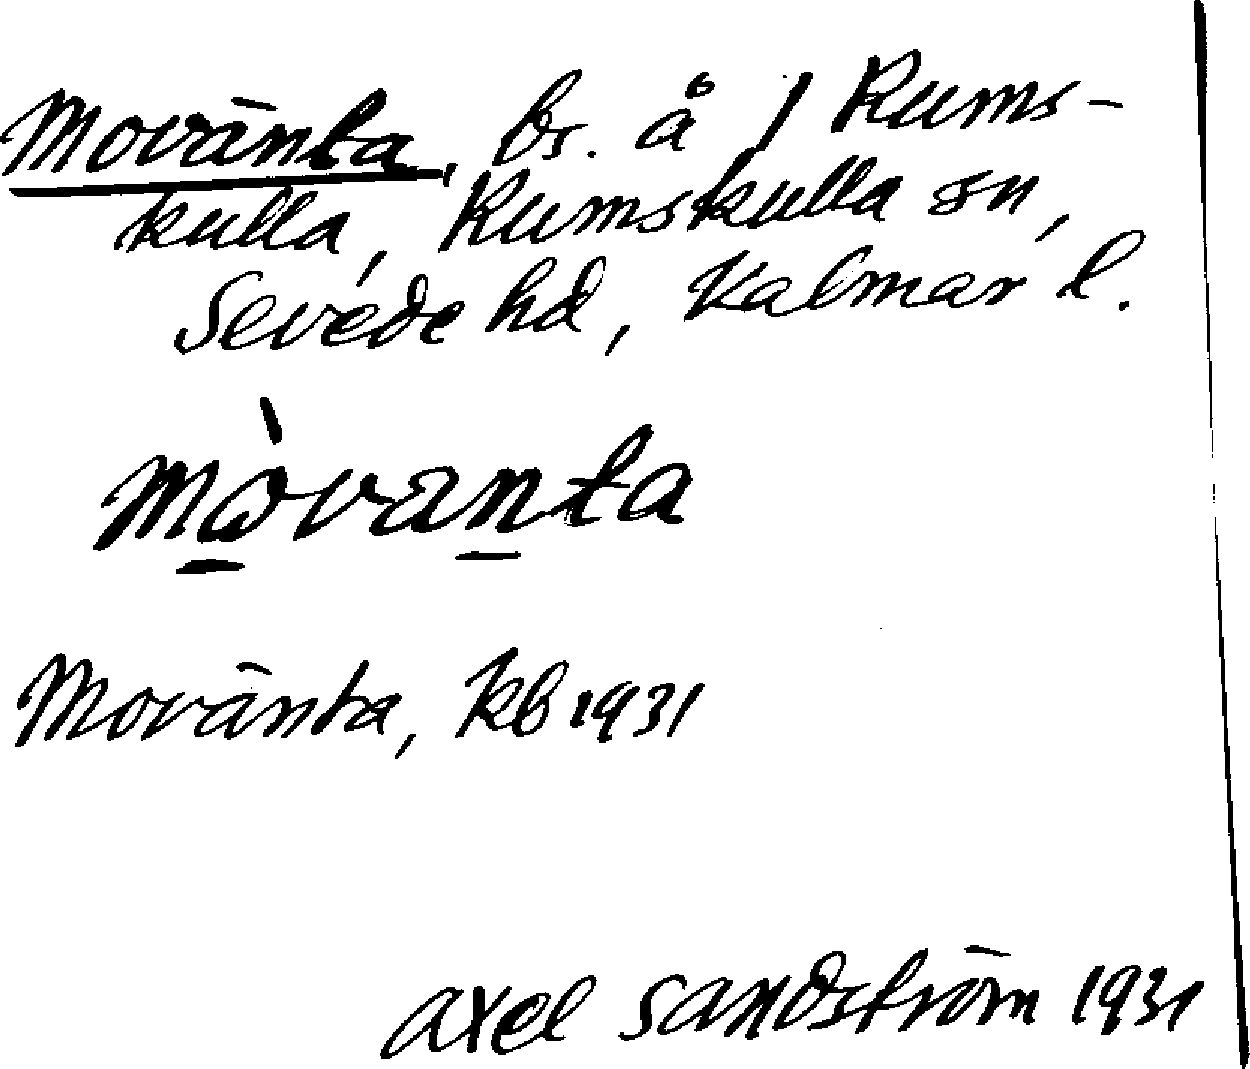 Movänta, bs. å 1 Rums-
kulla, Rumskulla sn,
Sevede hd, Kalmar l.
mòvanta
Movänta, kb 1931
Axel Sandström 1931